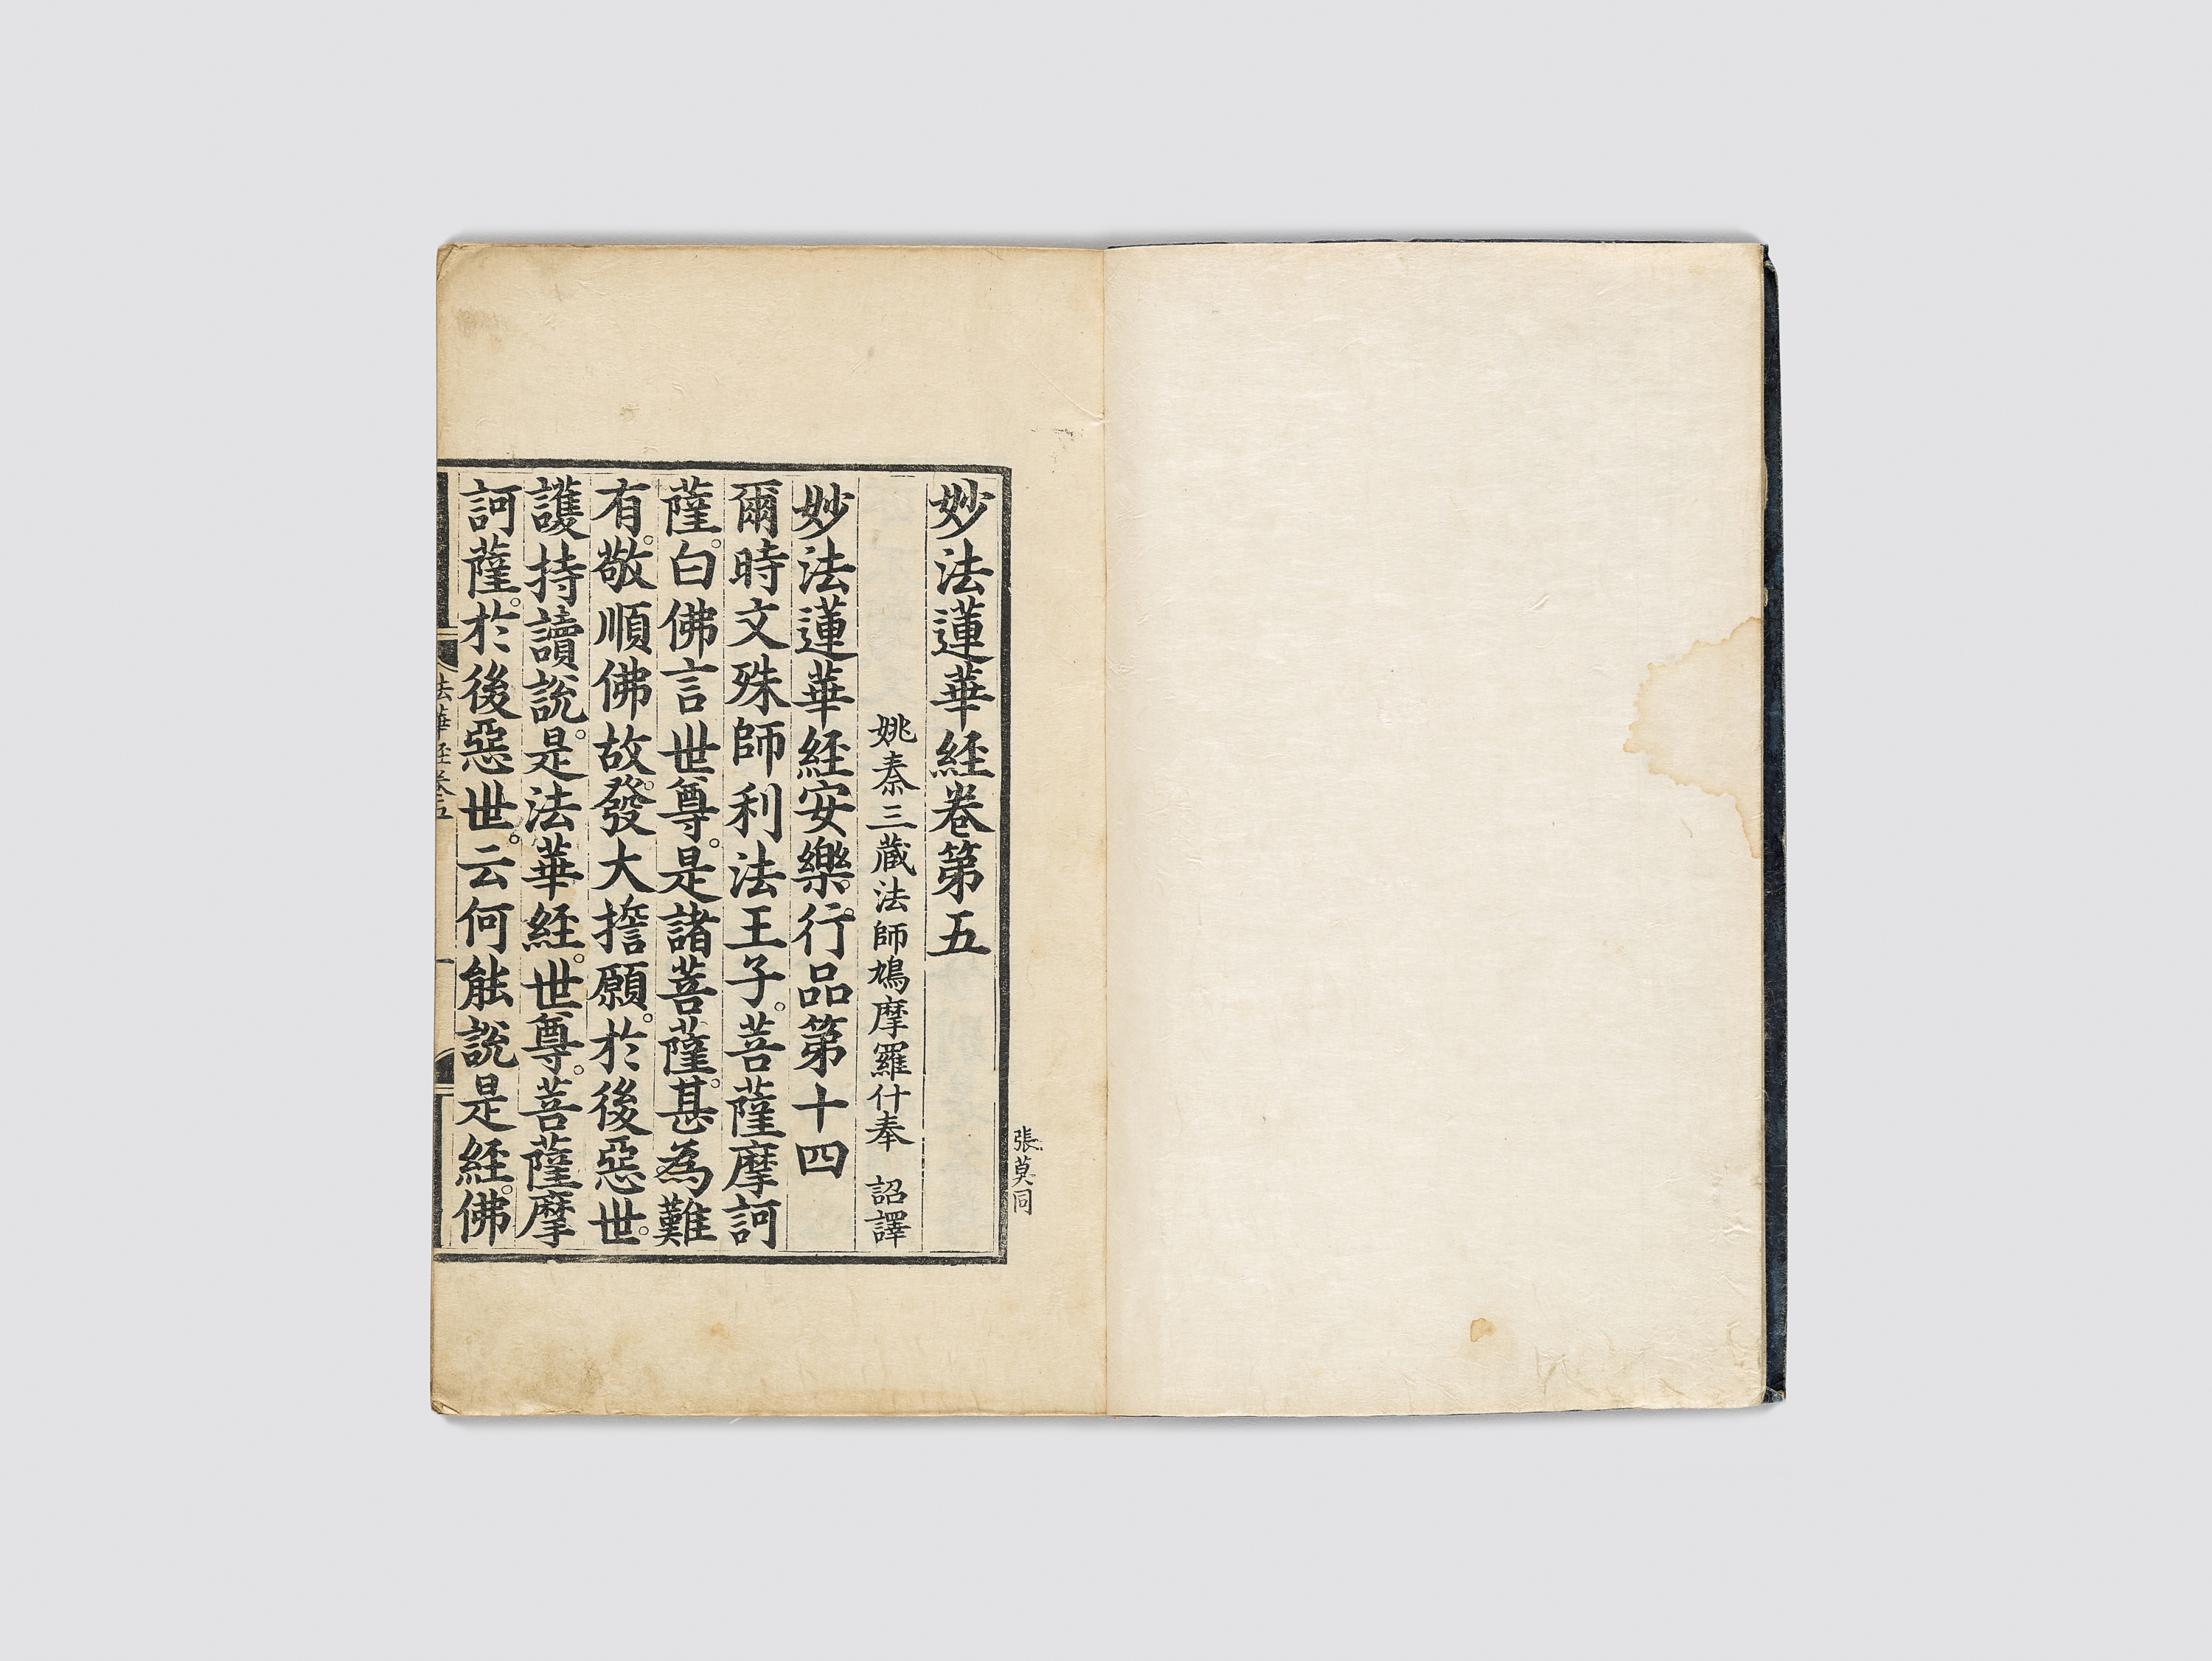 張莫同
妙法蓮華経卷第五
姚秦三蔵法師鳩摩羅什奉 詔譯
妙法蓮華経安樂。行品第十四
爾時文殊師利法王子。菩薩摩訶
薩。白佛言世尊。是諸菩薩。甚為難
有。敬順佛故。發大擔願。於後惡世。
護持讀說。是法華経。世尊。菩薩摩
訶薩。於後惡世。云何能說是経。佛
法華経卷五
一